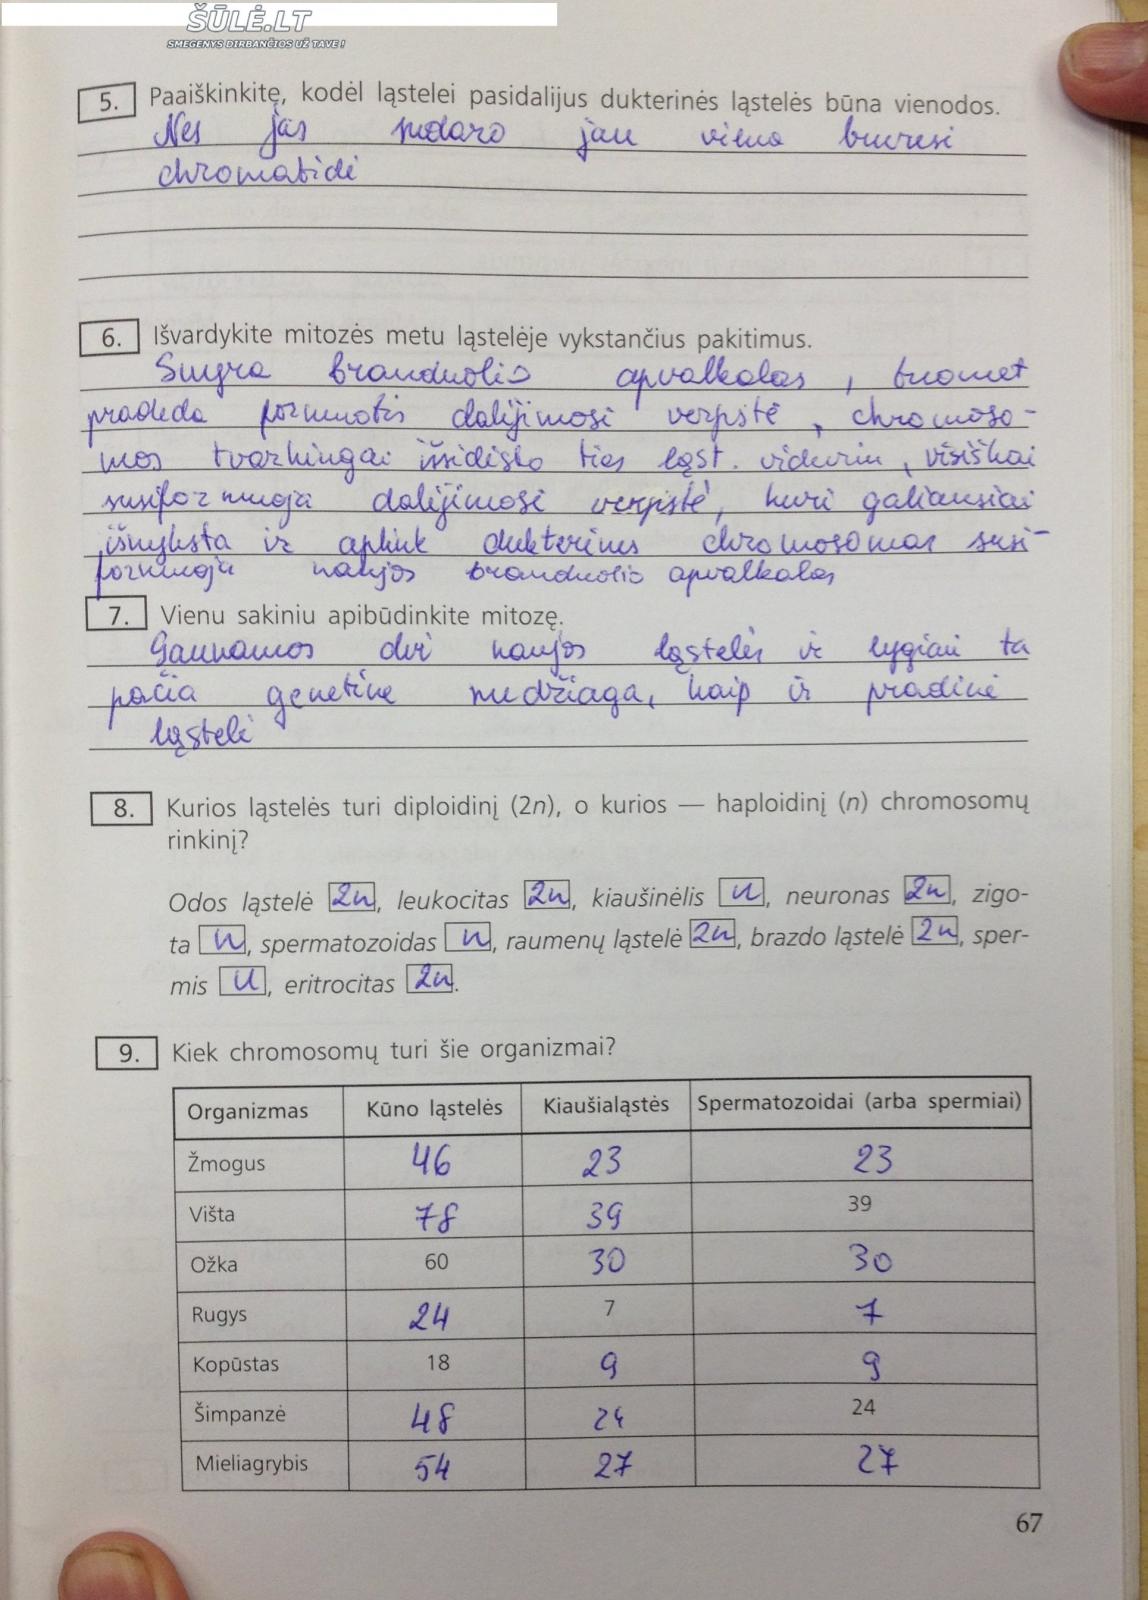 ŠŪLĖ.LT
SMEGENYS DIRBANČIOS UŽ TAVE!
5. Paaiškinkite, kodėl ląstelei pasidalijus dukterinės ląstelės būna vienodos.
Nes jas sudaro jau viena buvusi
chromatidė
6. Išvardykite mitozės metu ląstelėje vykstančius pakitimus.
Suyra branduolio apvalkalas, tuomet
pradeda formuotis dalijimosi verpstė, chromoso-
mos tvarkingai išsidėsto ties ląst. viduriu, visiškai
susiformuoja dalijimosi verpstė, kuri galiausiai
išnyksta ir aplink dukterines chromosomas susi-
formuoja naujos branduolio apvalkalas
7. Vienu sakiniu apibūdinkite mitozę.
Gaunamos dvi naujos ląstelės ir lygiai ta
pačia genetine medžiaga, kaip ir pradinė
ląstelė
8. Kurios ląstelės turi diploidinį (2n), o kurios — haploidinį (n) chromosomų
rinkinį?
Odos ląstelė 2n, leukocitas 2n, kiaušinėlis n, neuronas 2n, zigo-
ta n, spermatozoidas n, raumenų ląstelė 2n, brazdo ląstelė 2n, sper-
mis n, eritrocitas 2n.
9. Kiek chromosomų turi šie organizmai?
Organizmas Kūno ląstelės Kiaušialąstės Spermatozoidai (arba spermiai)
Žmogus 46 23 23
Višta 78 39 39
Ožka 60 30 30
Rugys 24 7 7
Kopūstas 18 9 9
Šimpanzė 48 24 24
Mieliagrybis 54 27 27
67